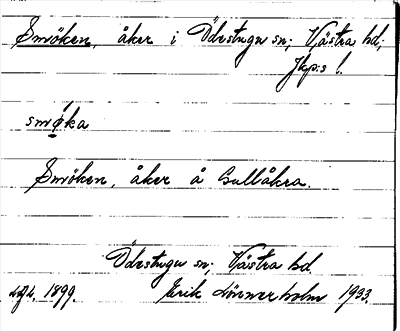 Smöken, åker i Ödestugu sn; Västra hd;
Jkp:s l.
smø̄́ka
Smöken, åker å Gullåkra.
Ödestugu sn; Västra hd.
uppt. 1899. Erik Lönnerholm 1933.